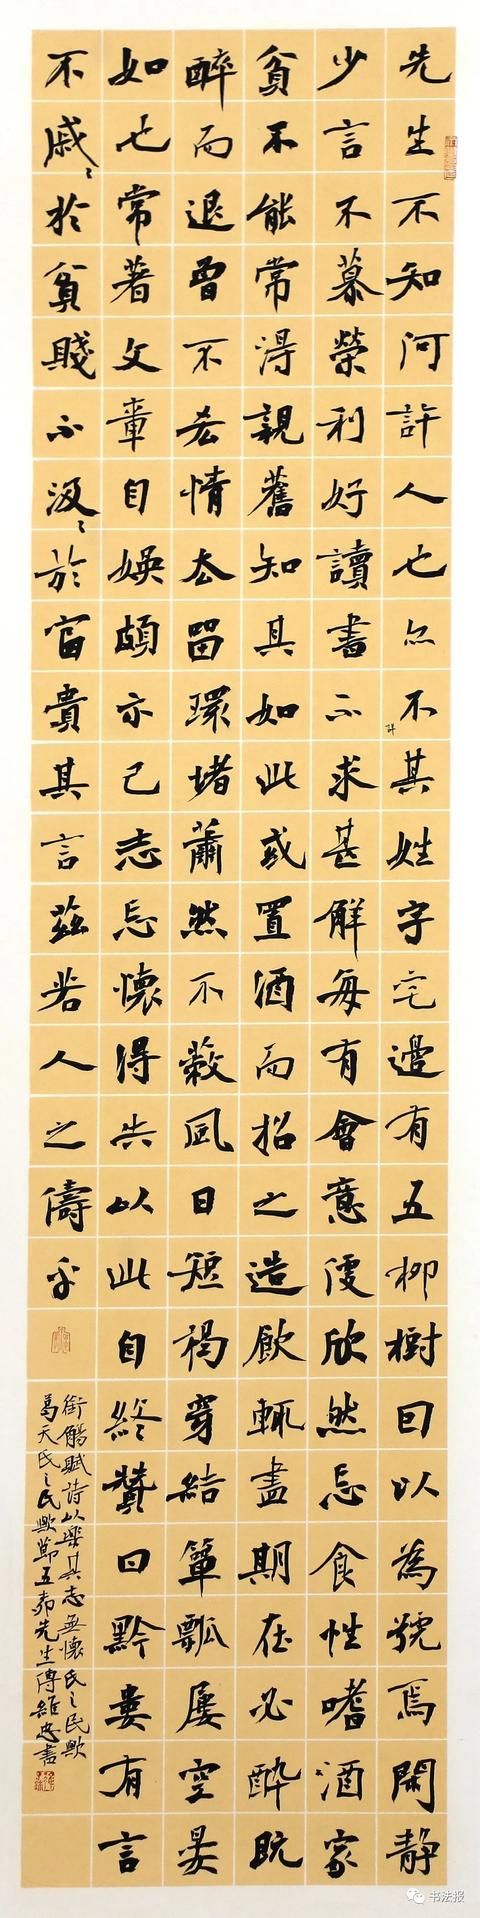 先生不知何許人也亦不詳其姓字宅邊有五柳樹因以為號焉閑靜
少言不慕榮利好讀書不求甚解每有會意便欣然忘食性嗜酒家
貧不能常得親舊知其如此或置酒而招之造飲輒盡期在必醉既
醉而退曾不吝情去留環堵蕭然不蔽風日短褐穿結簞瓢屢空晏
如也常著文章自娛頗示己志忘懷得失以此自終贊曰黔婁有言
不戚〻於貧賤不汲〻於富貴其言茲若人之儔乎
銜觴賦詩以樂其志無懷氏之民歟
葛天氏之民歟節五柳先生傳維忠書
书法报